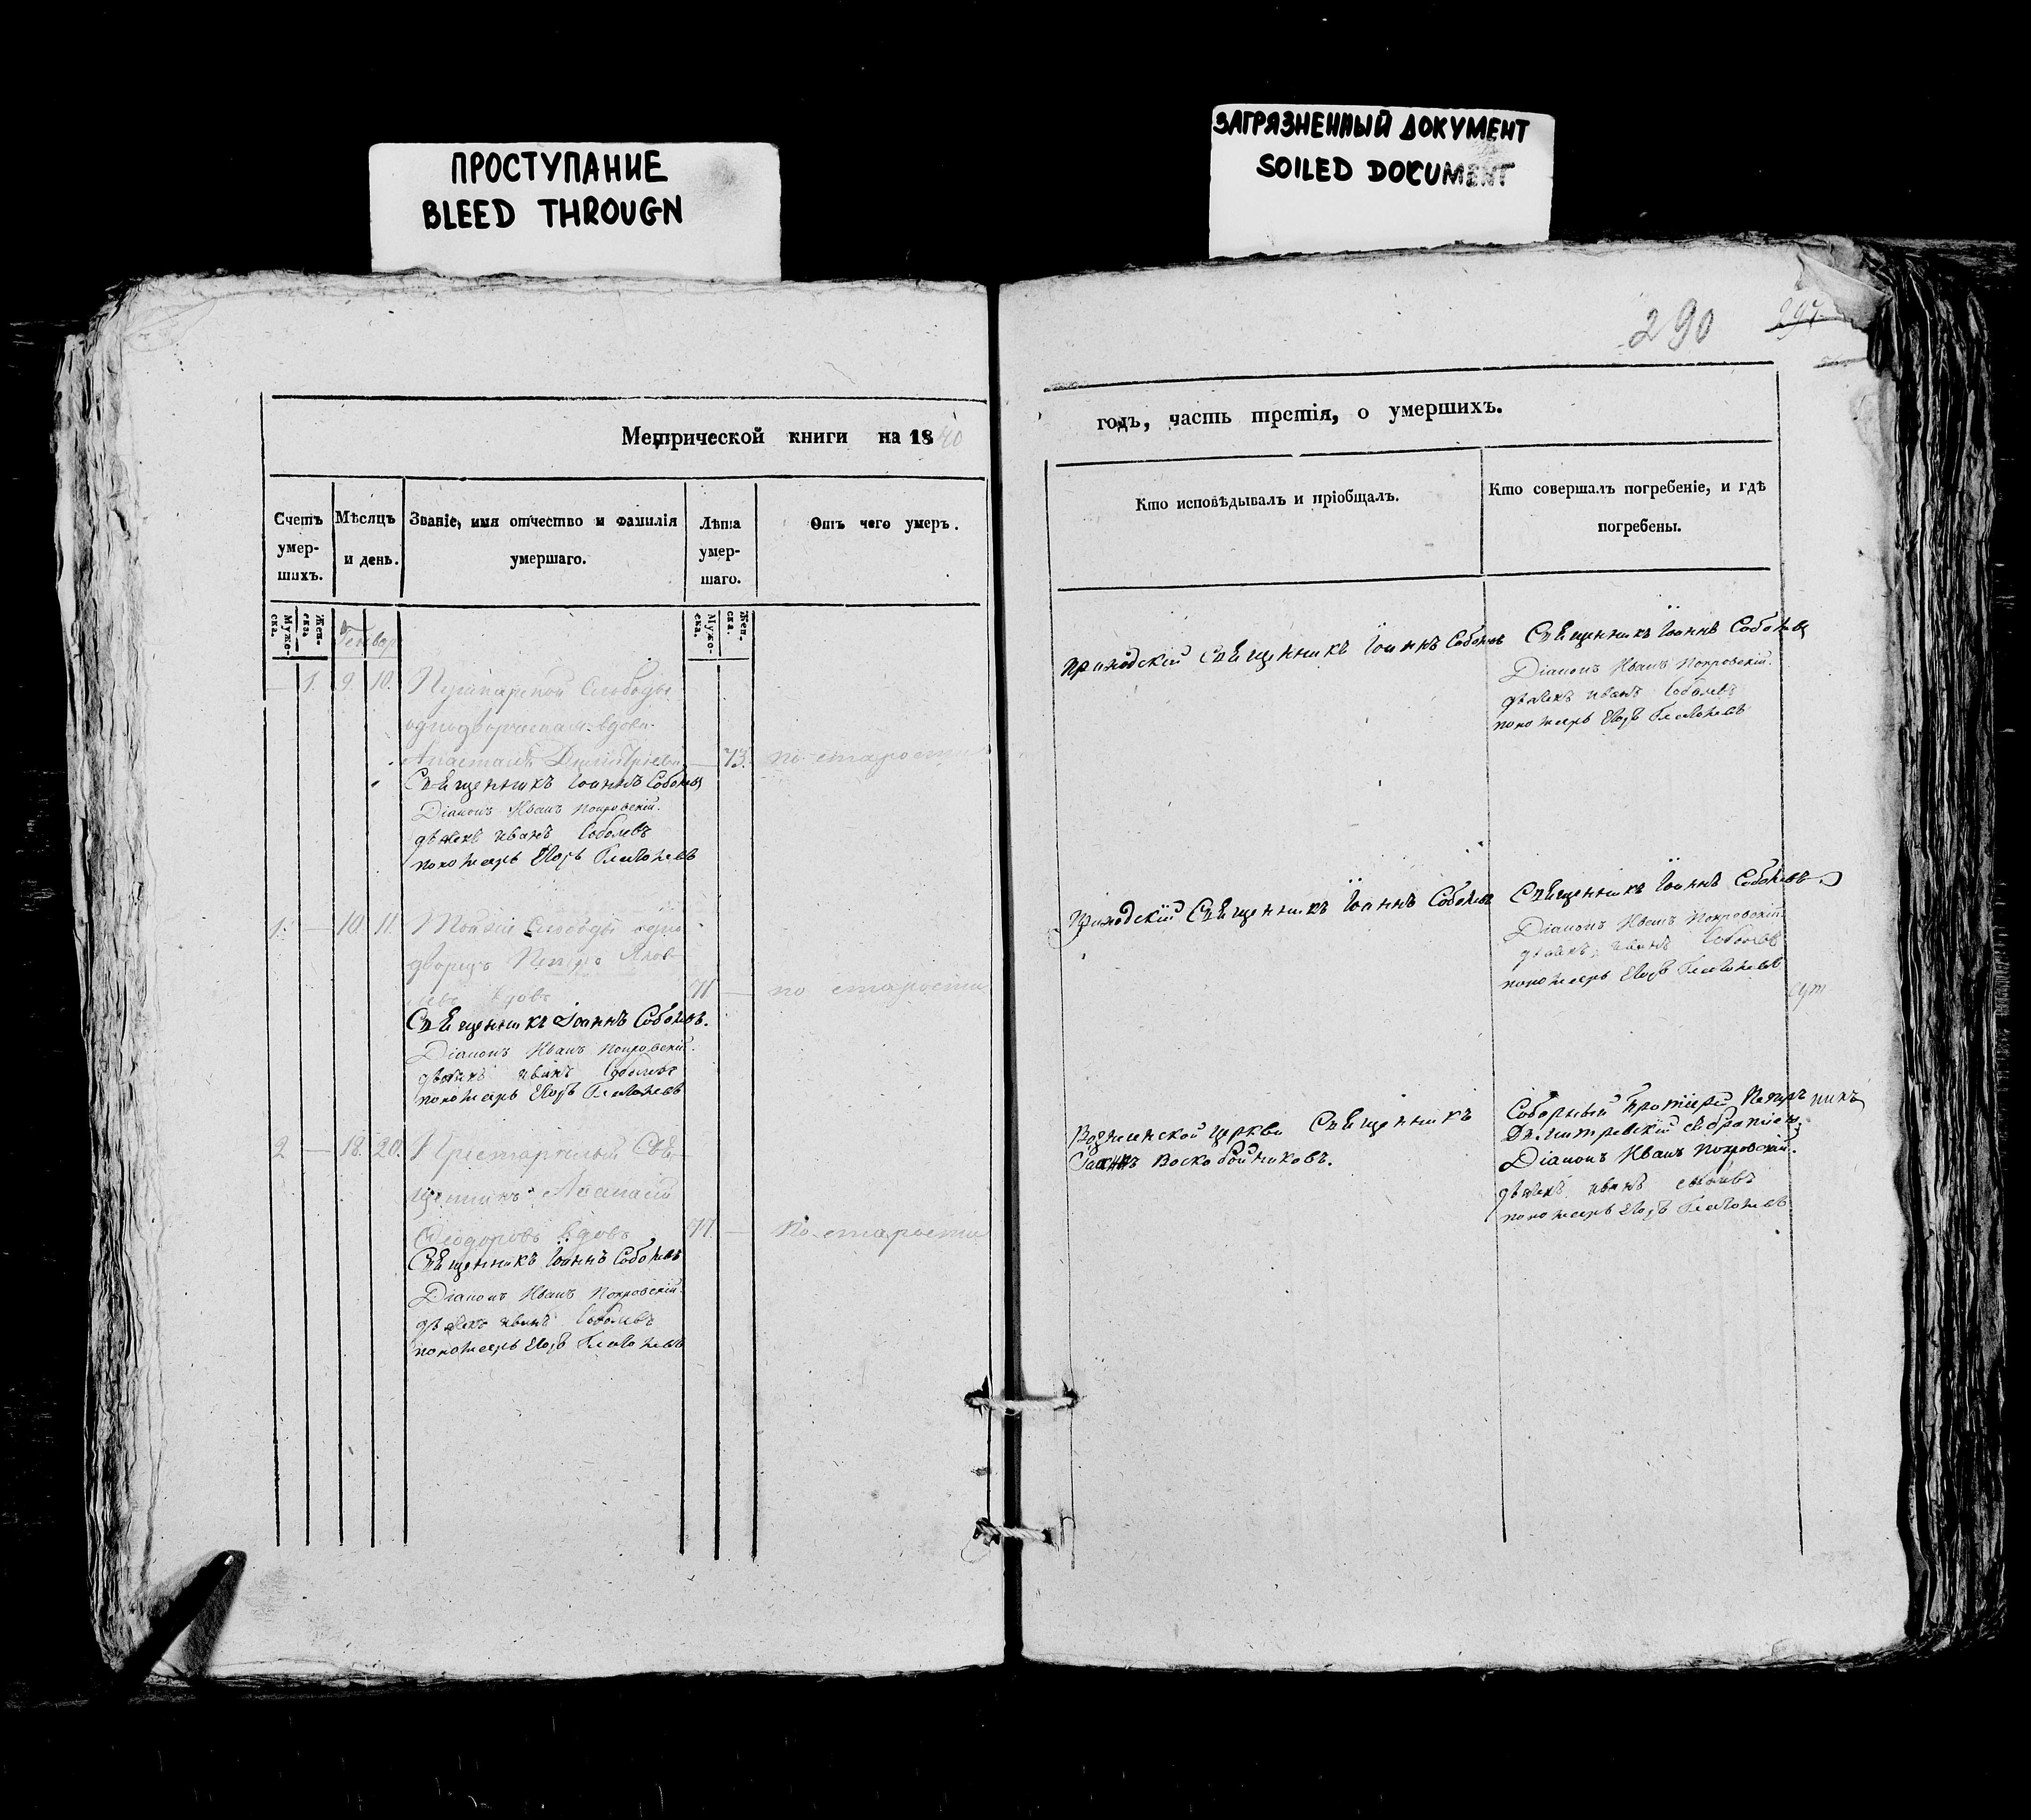 ПРОСТУПАНИЕ
BLEED THROUGN
ЗАГРЯЗНЕННЫЙ ДОКУМЕНТ
SOILED DOCUMENT
290
Метрической книги на 1840
Счетъ умер-шихъ.
Мѣсяцъ и день.
Званіе, имя отчество и фамилія умершаго.
Лѣта умер-шаго.
Отъ чего умеръ.
Мужес-ка.
Жен-ска.
Мужес-ка.
Жен-ска.
Генварь
— 1. 9. 10. Пушкарной Слободы
однодворческая вдова
Анастасія Димитріева — 73. по старости
Священникъ Іоаннъ Соболевъ
Діаконъ Иванъ Покровскій.
дьячекъ иванъ Соболевъ
пономарь Егоръ
1. — 10. 11. Тойже Слободы одно
дворецъ Петръ Яков
левъ вдовъ 71 — по старости
Священникъ Іоаннъ Соболевъ.
Діаконъ Иванъ Покровскій.
дьячекъ иванъ Соболевъ
пономарь Егоръ
2 — 18. 20. Престарѣлый Свя-
щенникъ Аѳанасій
Ѳеодоровъ вдовъ 77. — по старости
Священникъ Іоаннъ Соболевъ
Діаконъ Иванъ Покровскій.
дьячекъ иванъ Соболевъ
пономарь Егоръ
годъ, часть третія, о умершихъ.
Кто исповѣдывалъ и пріобщалъ.
Кто совершалъ погребеніе, и гдѣ погребены.
приходскій Священникъ Іоаннъ Соболевъ
Священникъ Іоаннъ Соболевъ
Діаконъ Иванъ Покровскій.
дьячекъ иванъ Соболевъ
пономарь Егоръ
Приходскій Священникъ Іоаннъ Соболевъ
Священникъ Іоаннъ Соболевъ
Діаконъ Иванъ Покровскій.
дьячекъ иванъ Соболевъ
пономарь Егоръ
Вознесенской церкви Священникъ
Воскобойниковъ.
Соборный Протіерей Петръ
Димитревскій
Діаконъ Иванъ Покровскій.
дьячекъ иванъ соболевъ
пономарь Егоръ